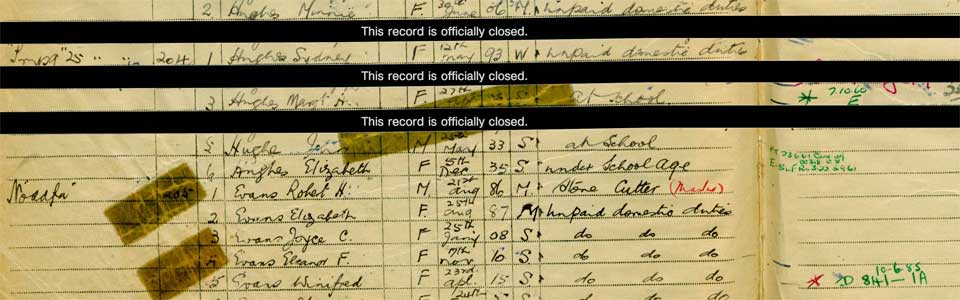 2 Hughes Minnie F. 30th June 06 M. Unpaid domestic duties
This record is officially closed.
" " 204 1 Hughes Sydney F 12th May 93 W. Unpaid domestic duties
This record is officially closed.
3 Hughes Margt H. F. 27th S. at School. 7.10.60
This record is officially closed.
5 Hughes John M 25th May 33 S. at School
6 Hughes Elizabeth F 5th Dec 35 S. under School Age
Noddfa 205 1 Evans Robert H. M. 21st Aug 86 M. Stone Cutter
2 Evans Elizabeth F. 25th Aug 87 M. Unpaid domestic duties
3 Evans Joyce C. F 25th Jany 08 S. do do do
Evans Eleanor F. F 17th Nov. 10 S. do do do
5 Evans Winifred F 23rd Apl. 15 S. do do do 10-6-85
24th D 841-1A